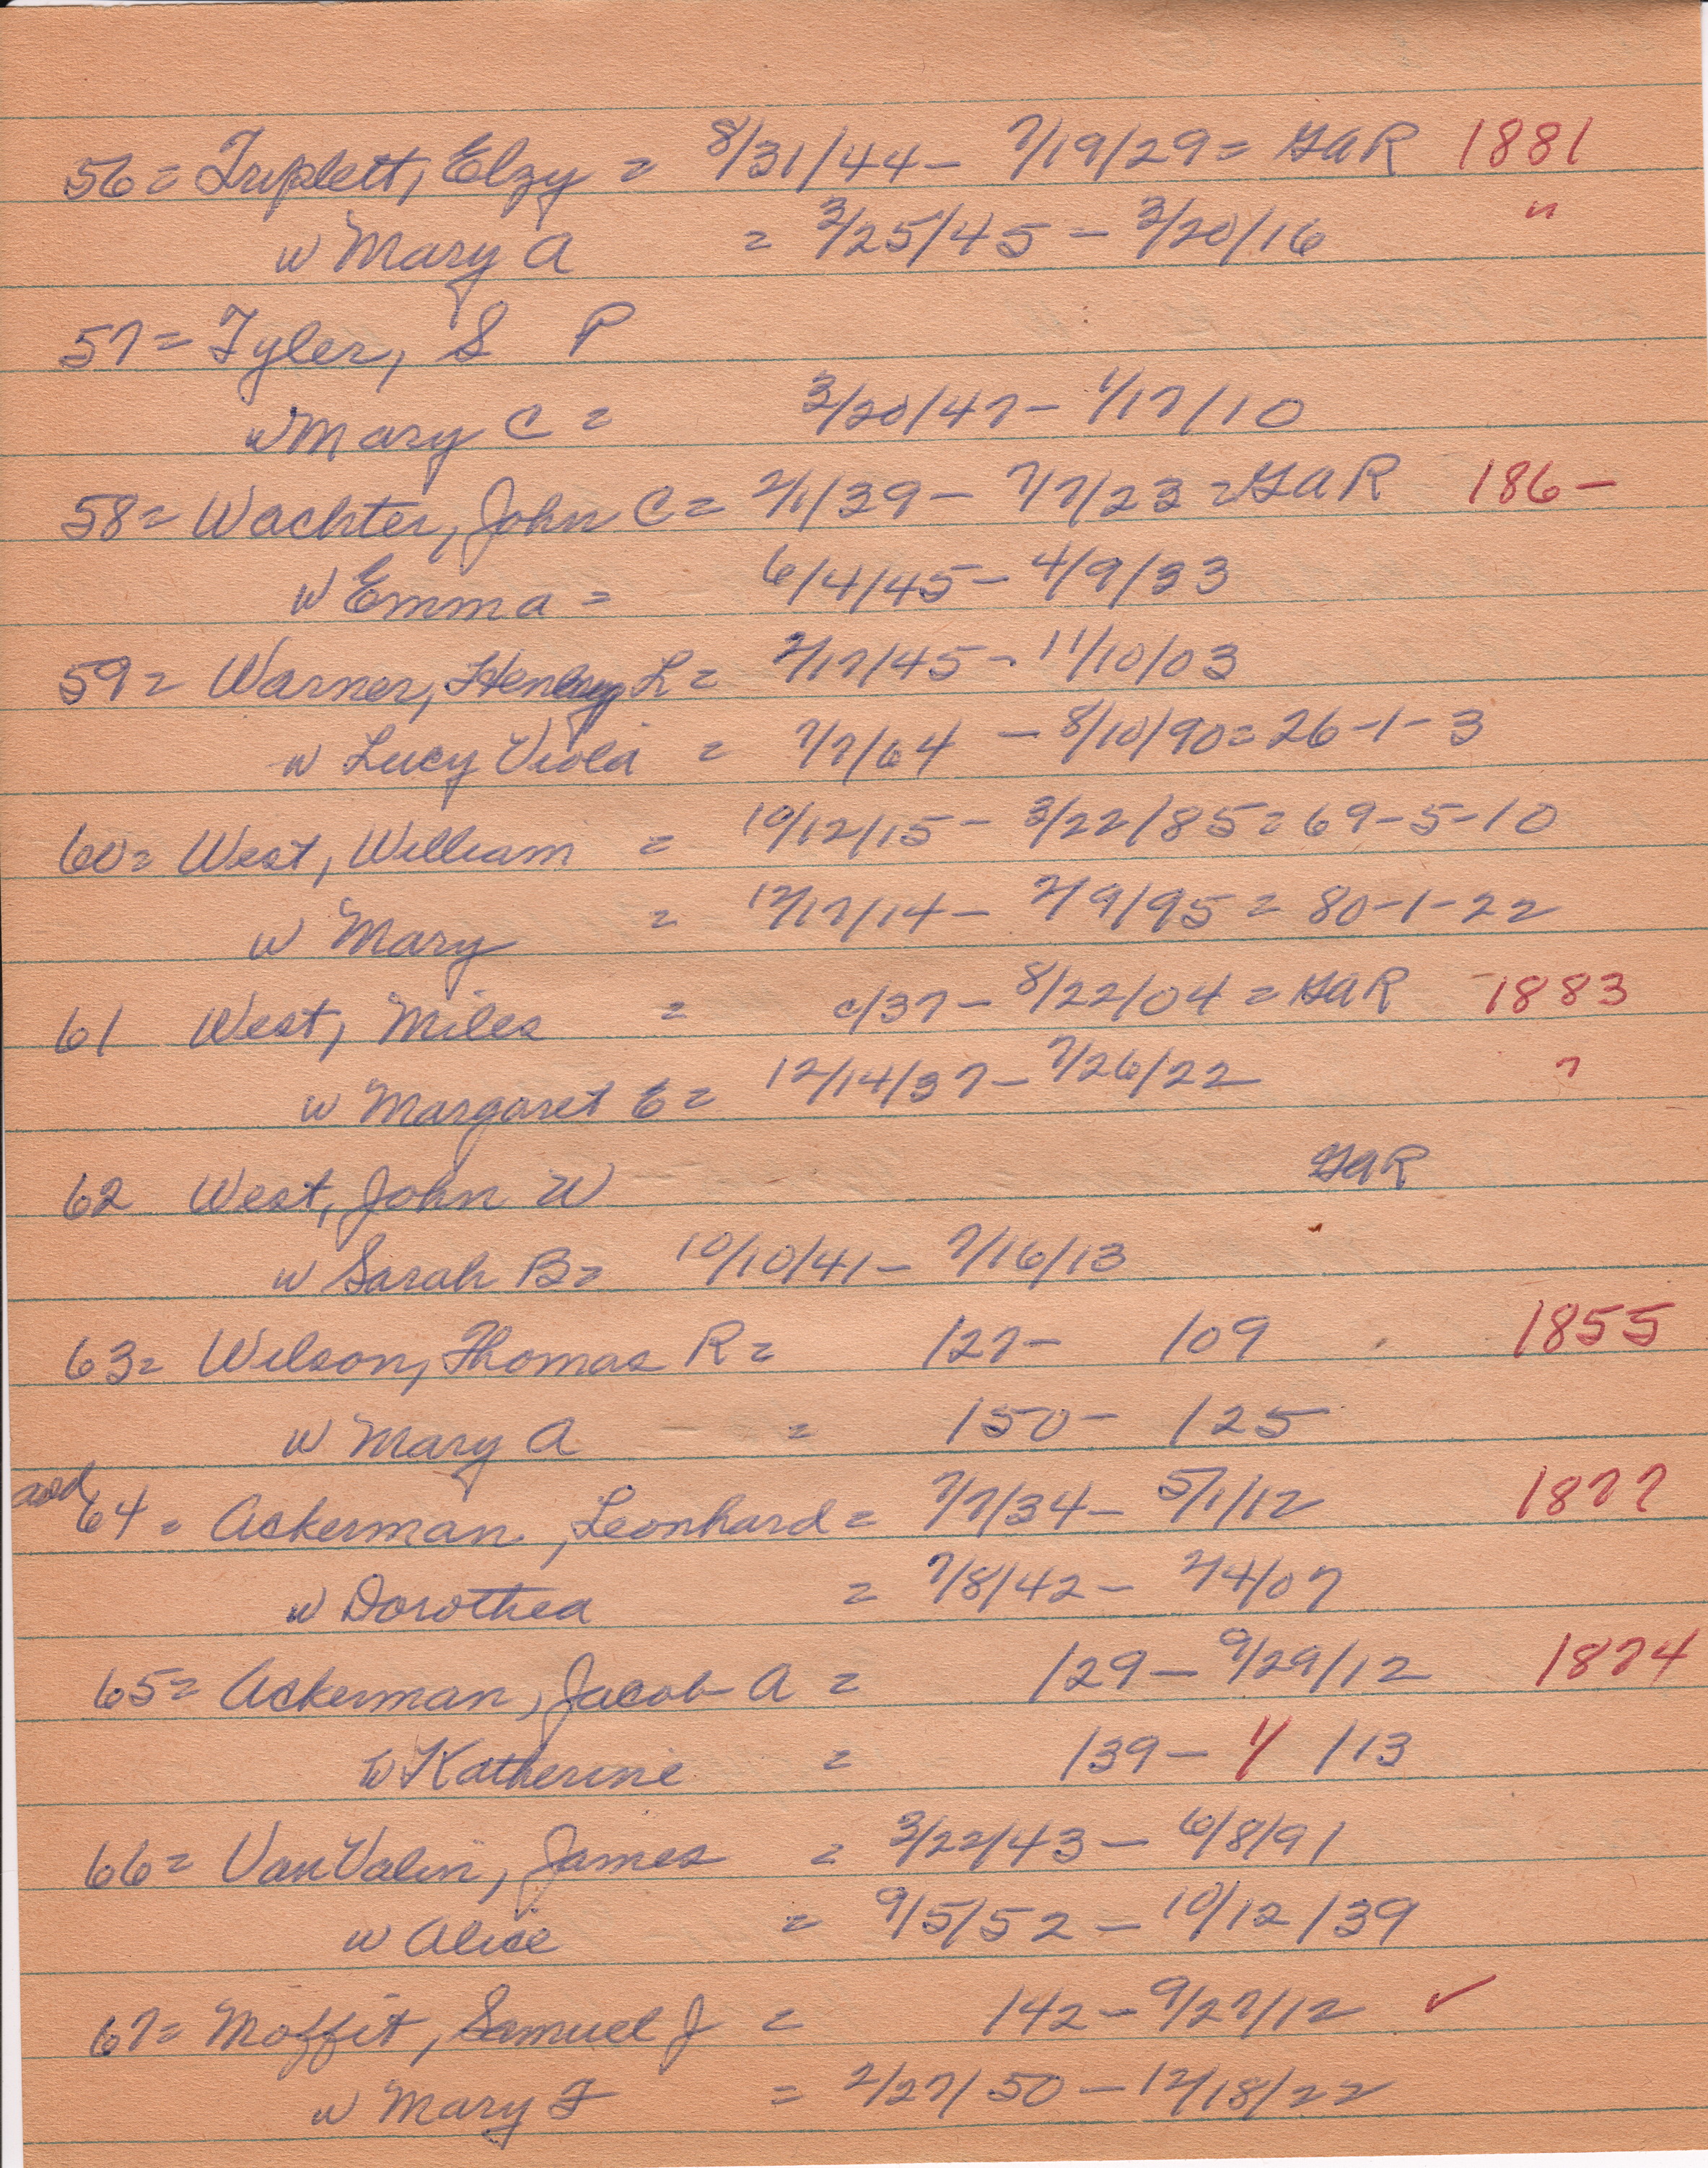 56= Triplett, Elzy = 8/31/44 - 7/19/29 = GAR 1881
w Mary A = 3/25/45 - 3/20/16 "
57= Tyler, S P
w Mary C = 3/20/47 - 1/17/10
58= Wachter, John C = 2/1/39 - 7/7/23 = GAR 186-
w Emma = 6/4/45 - 4/9/33
59= Warner, Henry L = 2/17/45 - 11/10/03
w Lucy Viola = 7/7/64 - 8/10/90 = 26-1-3
60= West, William = 10/12/15 - 3/22/85 = 69-5-10
w Mary = 12/17/14 - 2/9/95 = 80-1-22
61 West, Miles = c/37 - 8/22/04 = GAR 1883
w Margaret E = 12/14/37 - 7/26/22 ?
62 West, John W GAR
w Sarah B = 10/10/41 - 7/16/13
63= Wilson, Thomas R = /27 - /09 1855
w Mary A = /50 - /25
add
64 = Ackerman, Leonhard = 7/7/34 - 5/1/12 1877
w Dorothea = 7/8/42 - 2/4/07
65= Ackerman, Jacob A = /29 - 9/29/12 1874
w Katherine = /39 - 1/ /13
66= Van Valin, James = 3/22/43 - 6/8/91
w Alice = 9/5/52 - 10/12/39
67= Moffit, Samuel J = /42 - 9/27/12 ✓
w Mary F = 2/27/50 - 12/18/22